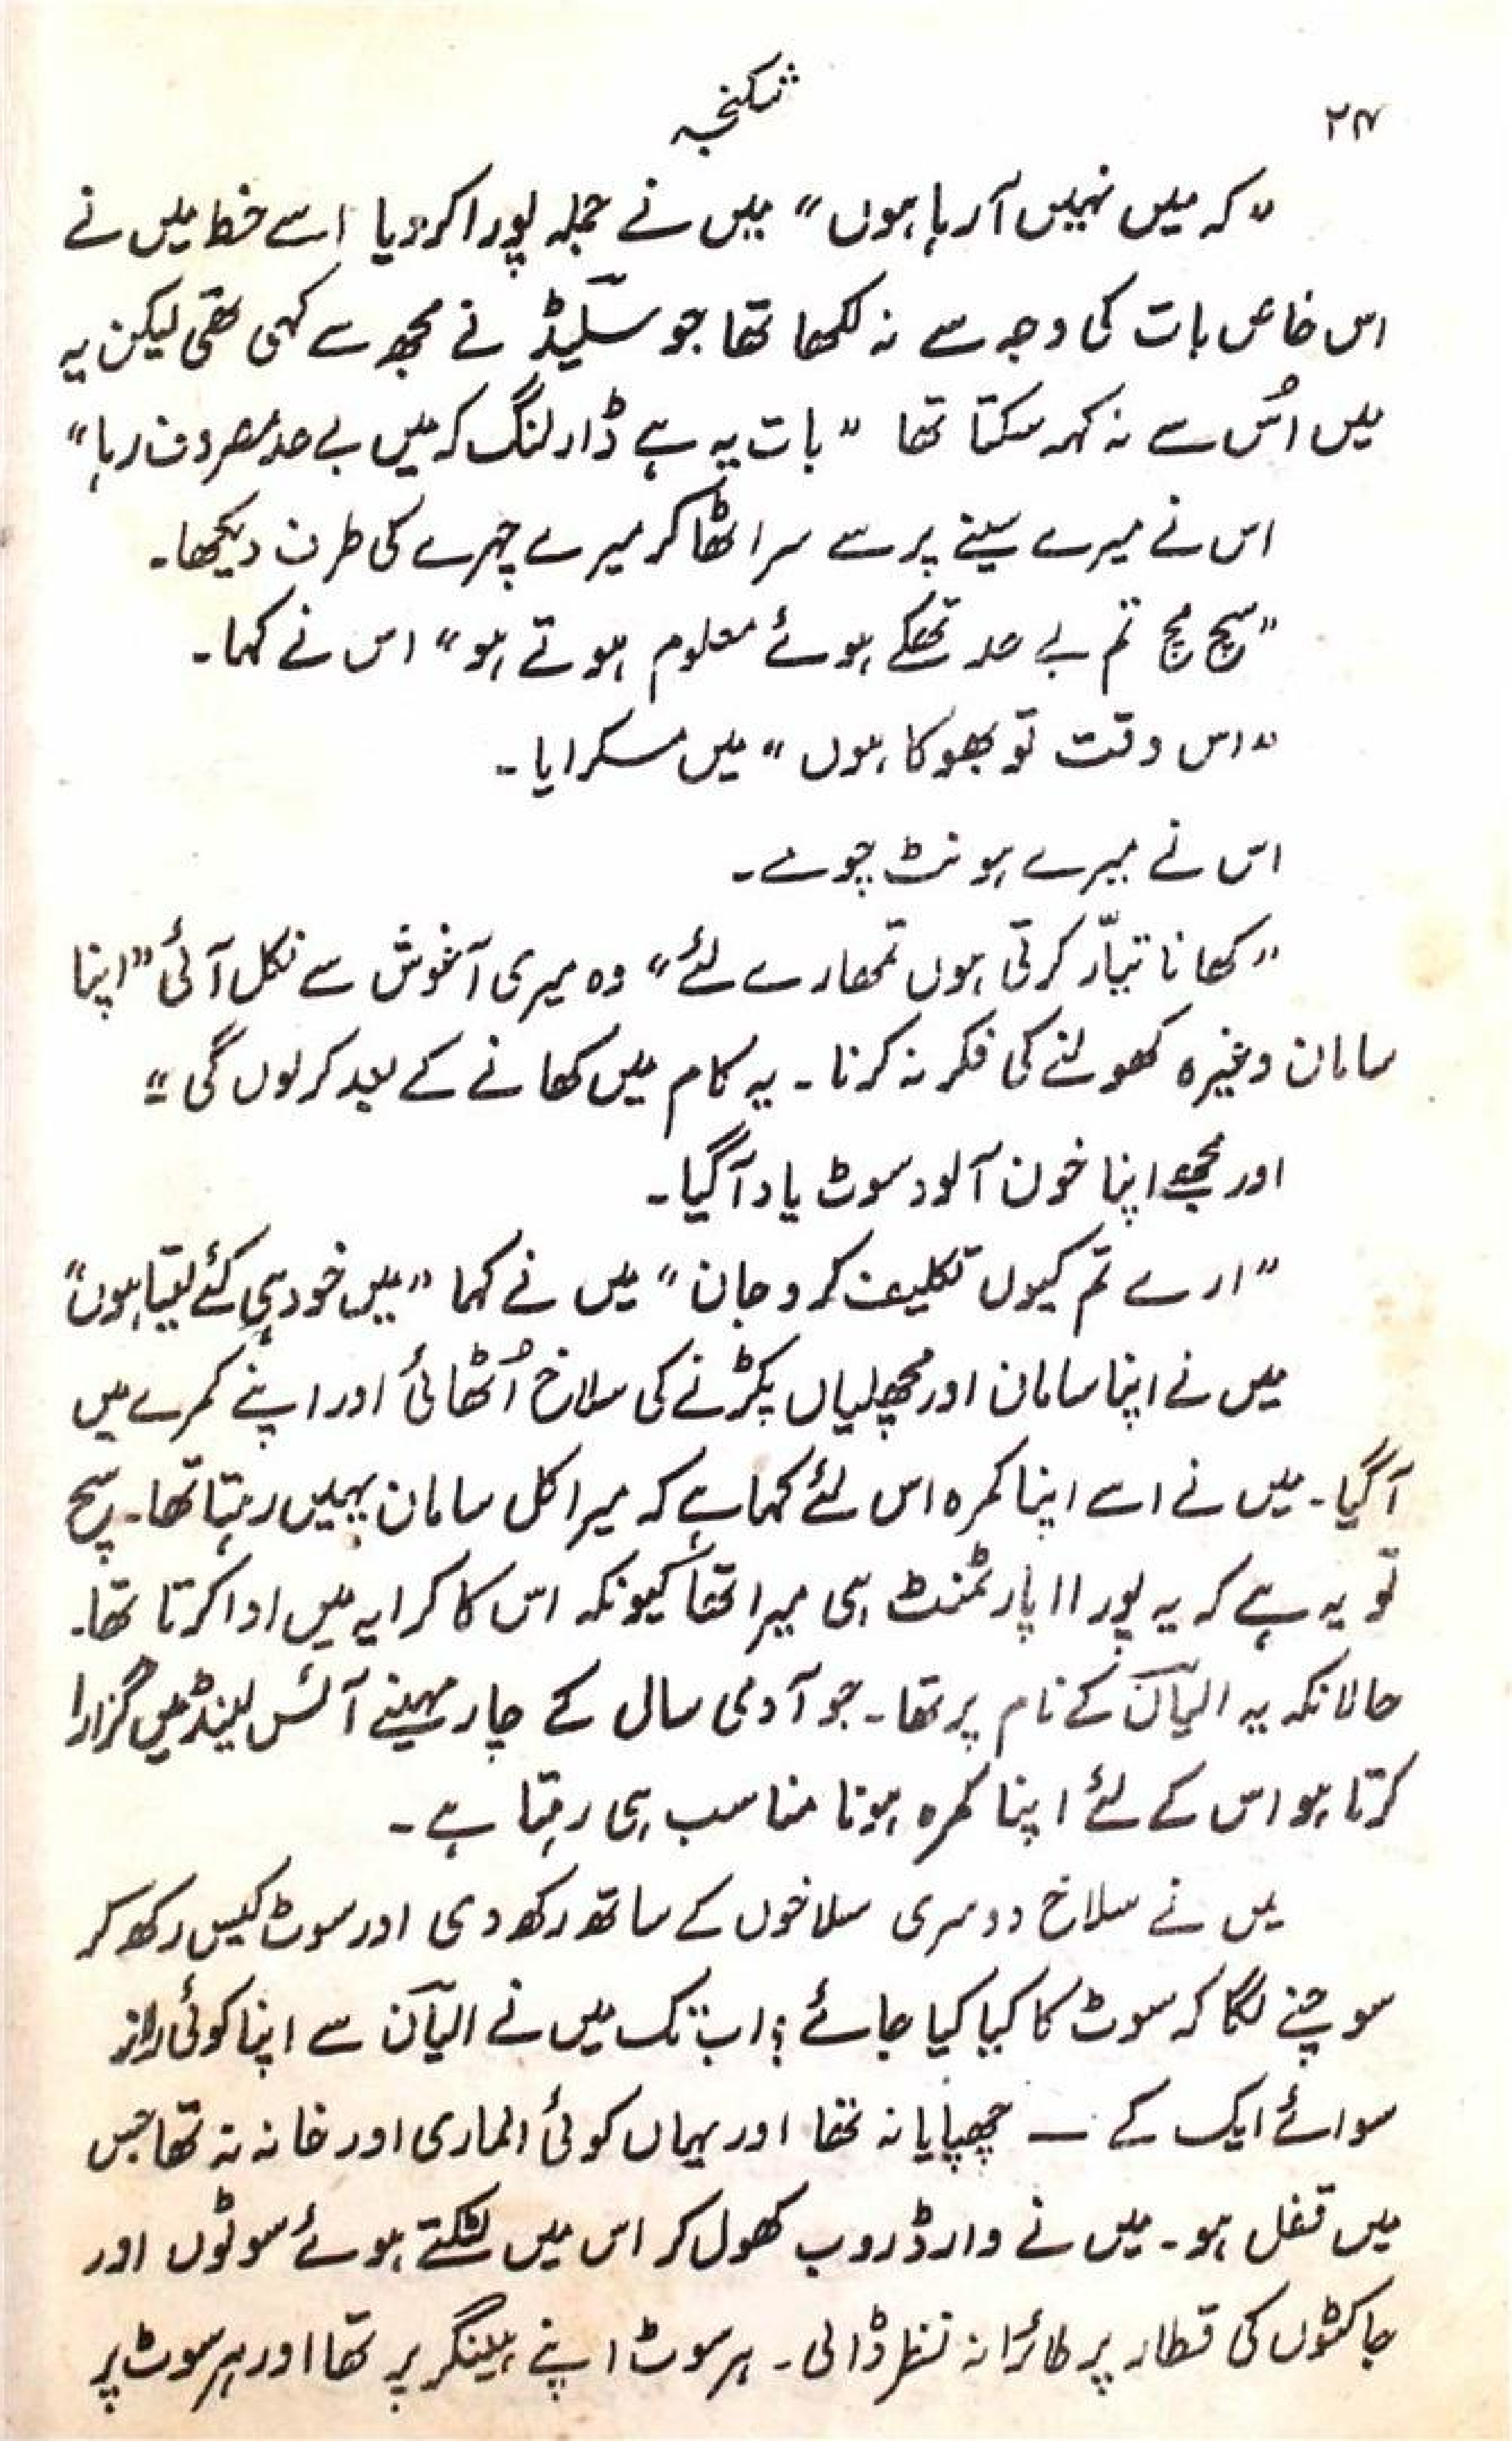 ۲۴
شکنجہ
"کہ میں نہیں آرہا ہوں" میں نے جملہ پورا کردیا اسے خط میں نے
اس خاص بات کی وجہ سے نہ لکھا تھا جو سلیڈ نے مجھ سے کہی تھی لیکن یہ
میں اُس سے نہ کہہ سکتا تھا "بات یہ ہے ڈارلنگ کہ میں بے حد مصروف رہا"
اس نے میرے سینے پر سے سر اٹھا کر میرے چہرے کی طرف دیکھا۔
"سچ مچ تم بے حد تھکے ہوئے معلوم ہوتے ہو" اس نے کہا۔
"اس وقت تو بھوکا ہوں" میں مسکرایا۔
اس نے میرے ہونٹ چومے۔
"کھانا تیّار کرتی ہوں تمھارے لئے" وہ میری آغوش سے نکل آئی "اپنا
سامان وغیرہ کھولنے کی فکر نہ کرنا۔ یہ کام میں کھانے کے بعد کرلوں گی"
اور مجھے اپنا خون آلود سوٹ یاد آگیا۔
"ارے تم کیوں تکلیف کرو جان" میں نے کہا "میں خود ہی کئے لیتا ہوں"
میں نے اپنا سامان اور مچھلیاں پکڑنے کی سلاخ اُٹھائی اور اپنے کمرے میں
آگیا۔ میں نے اسے اپنا کمرہ اس لئے کہا ہے کہ میرا کل سامان یہیں رہتا تھا۔ سچ
تو یہ ہے کہ یہ پورا اپارٹمنٹ ہی میرا تھا کیونکہ اس کا کرایہ میں ادا کرتا تھا۔
حالانکہ یہ الیآن کے نام پر تھا۔ جو آدمی سال کے چار مہینے آئس لینڈ میں گزارا
کرتا ہو اس کے لئے اپنا کمرہ ہونا مناسب ہی رہتا ہے۔
میں نے سلاخ دوسری سلاخوں کے ساتھ رکھ دی اور سوٹ کیس رکھ کر
سوچنے لگا کہ سوٹ کا کیا کیا جائے؟ اب تک میں نے الیآن سے اپنا کوئی راز
سوائے ایک کے — چھپایا نہ تھا اور یہاں کوئی الماری اور خانہ نہ تھا جس
میں قفل ہو۔ میں نے وارڈروب کھول کر اس میں لٹکتے ہوئے سوٹوں اور
جاکٹوں کی قطار پر طائرانہ نظر ڈالی۔ ہر سوٹ اپنے ہینگر پر تھا اور ہر سوٹ پر